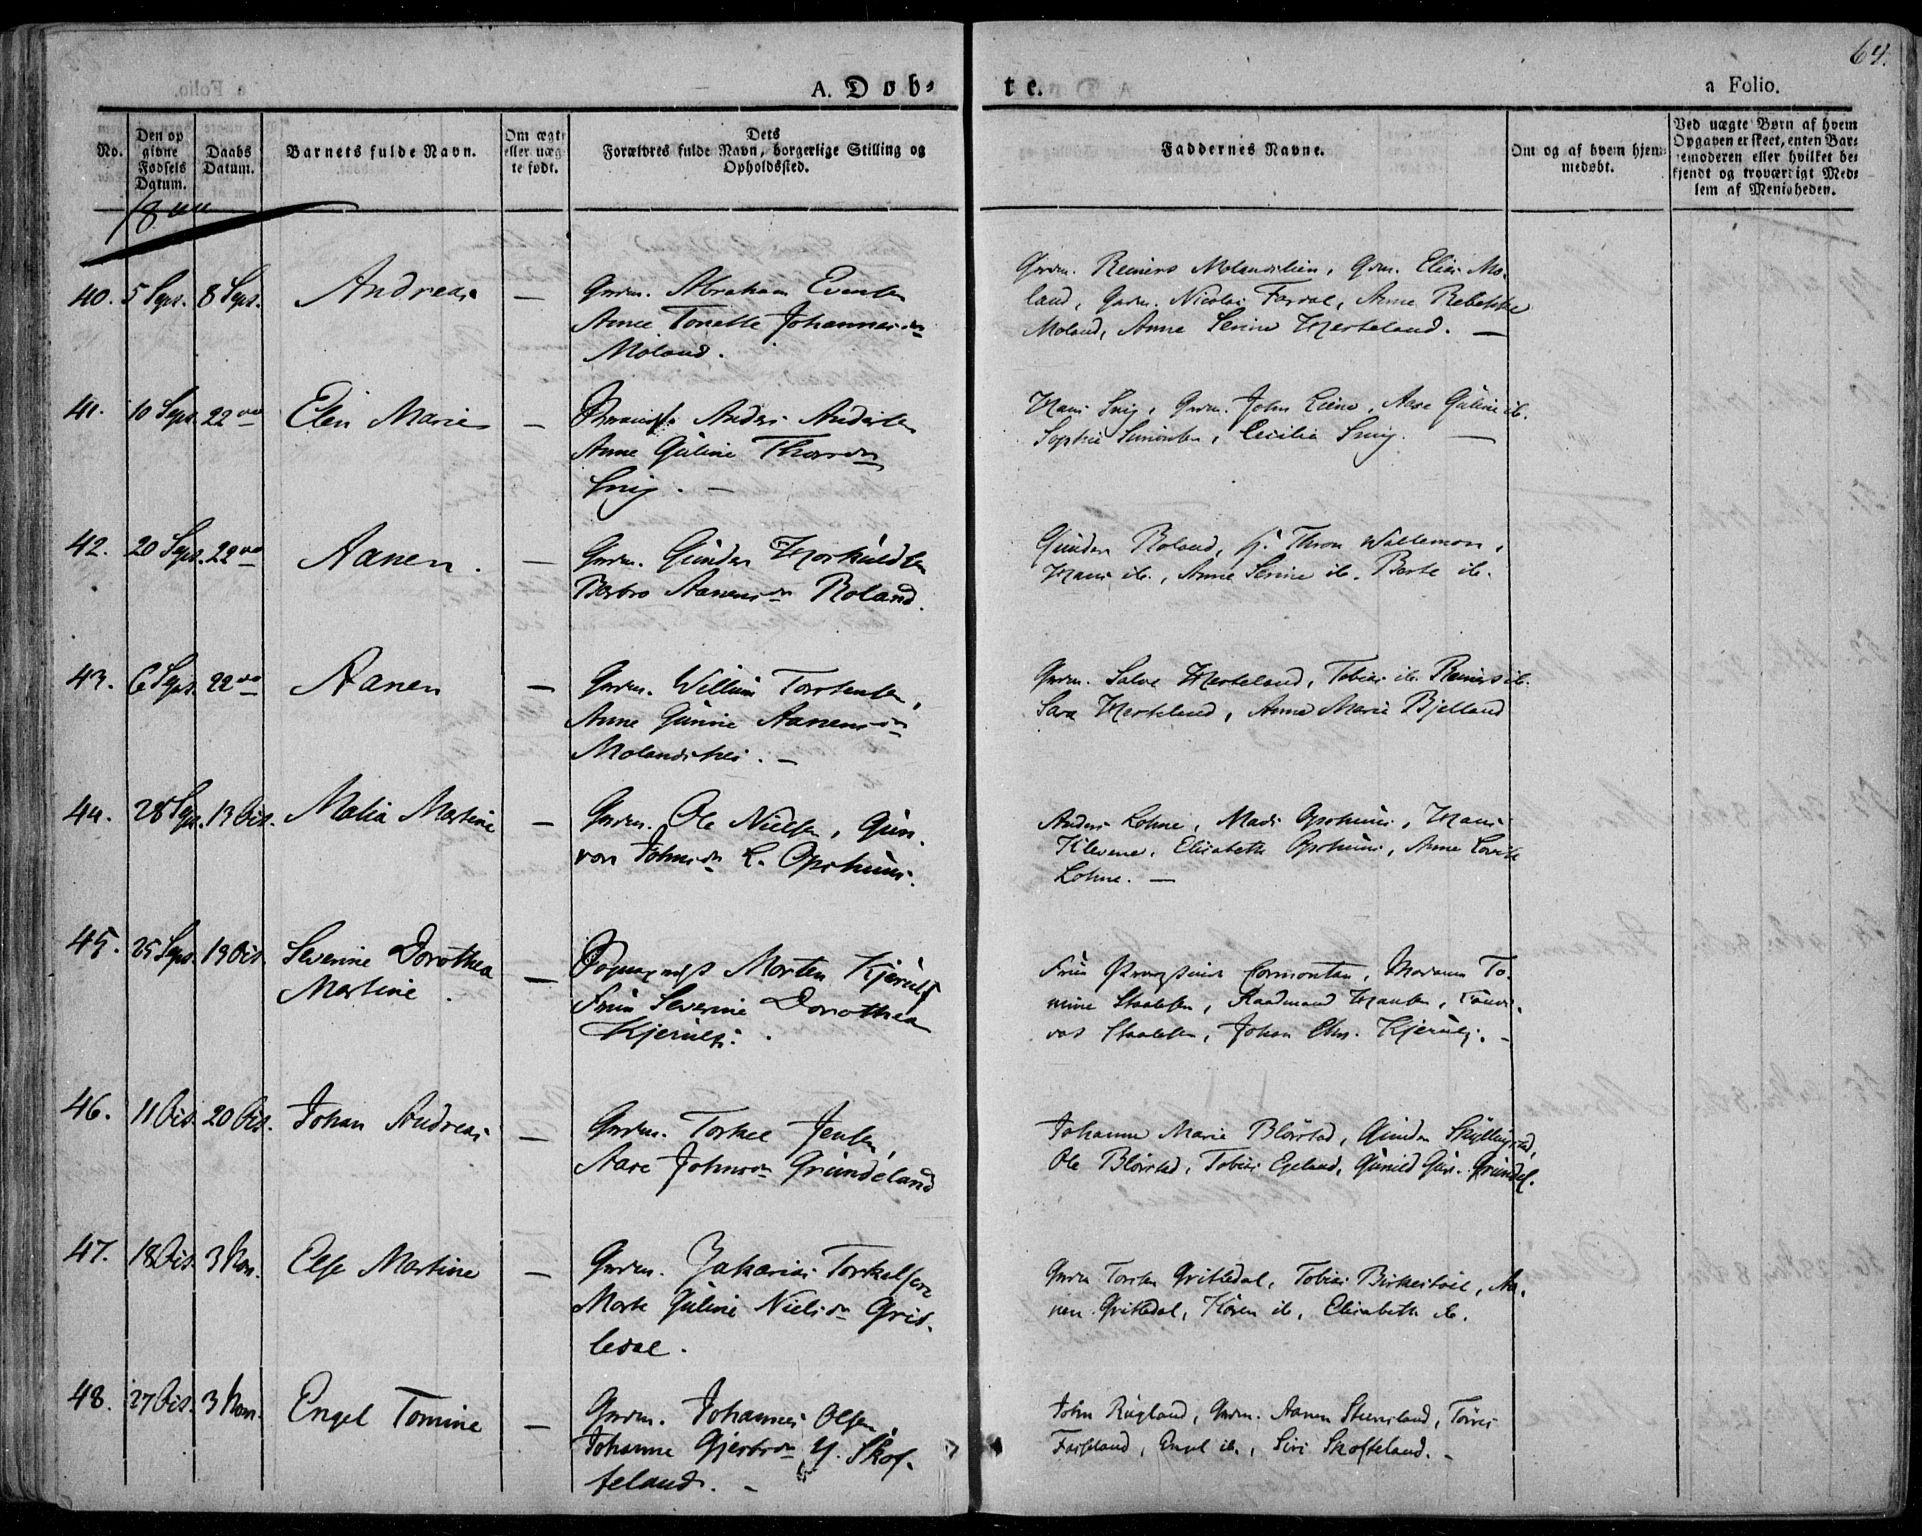 64.
A. Døb-
te.
a Folio.
No.
Den op
givne
Fødsels
Datum.
Daabs
Datum.
Barnets fulde Navn.
Om ægte
eller uæg-
te født.
Dets
Forældres fulde Navn, borgerlige Stilling og
Opholdssted.
Faddernes Navne.
Om og af hvem hjem-
medøbt.
Ved uægte Børn af hvem
Opgaven er skeet, enten Bar-
nemoderen eller hvilket be-
kjendt og troværdigt Med-
lem af Menigheden.
40. 5 Sept. 8 Sept. Andreas — Grdm. Abraham Evensen
Anne Tonette Johannesdr
Moland.
Grdm. Reiners Molandslien, Grdm. Elias Mo-
land, Grdm. Nicolai Fardal, Anne Rebekke
Moland, Anne Serine Herkeland. —
41. 10 Sept. 22 Elen Marie — Anders Andersen
Anne Guline Thordr
Snig. —
Hans Snig, Grdm. John Liene, Aase Guline ib.
Sophie Simonsen, Cecilia Snig. —
42. 20 Sept. 22 Aanen. — Grdm. Gunder Horkuldsen
Berbro Aanensdr Roland.
Gunder Roland, Thron Wallemon,
Hans ib., Anne Serine ib. Berte ib.
43. 6 Sept. 22 Aanen — Grdm. Willum Torstensen,
Anne Gunnie Aanensdr
Molandshei. —
Grdm. Salve Herkeland, Tobias ib. Reiners ib.
Sara Herkeland, Anne Marie Bjelland
44. 28 Sept. 13 Oct. Malia Martine — Grdm. Ole Nielsen, Gun-
vor Johnsdr L. Opohuus.
Anders Lohne, Mads Opohuus, Hans
Klevene, Elisabeth Opohuus, Anne
Lohne. —
45. 25 Sept. 19 Oct. Severine Dorothea
Martine. — Morten Kjerulf
Frue Severine Dorothea
Kjerulf.
Frue Cormontan, Madam To-
mine Staalesen, Raadmand Hansen,
Staalesen, Johan Chr. Kjerulf. —
46. 11 Oct. 20 Oct. Johan Andreas — Grdm. Torkel Jensen,
Aase Johnsdr Grundeland
Johanne Marie Blørstad, Gunder Skyllingstad,
Ole Blørstad, Tobias Egeland, Gunild Gur. Grundel.
47. 18 Oct. 3 Nov. Else Martine — Grdm. Zakarias Torkelsen
Marte Guline Nielsdr Gris-
ledal.
Grdm Torsten Grisledal, Tobias Birkestøl, Aa-
nen Grisledal, Karen ib, Elisabeth ib.
48. 27 Oct. 3 Nov. Engel Tomine — Grdm. Johannes Olsen,
Johanne Gjerbrdr Y. Skof-
teland. —
John Rugland, Grdm. Aanen Steensland, Tørres
Faseland, Engel ib., Siri Skofteland. —